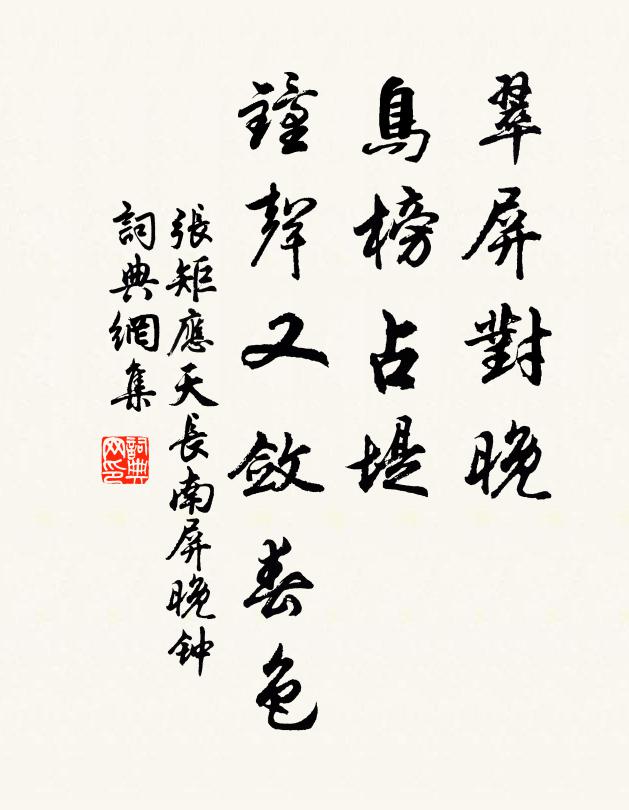 翠屏對晚
鳥榜占堤
鐘聲又斂春色
張矩應天長南屏晚钟
詞典網集
詞典
网印